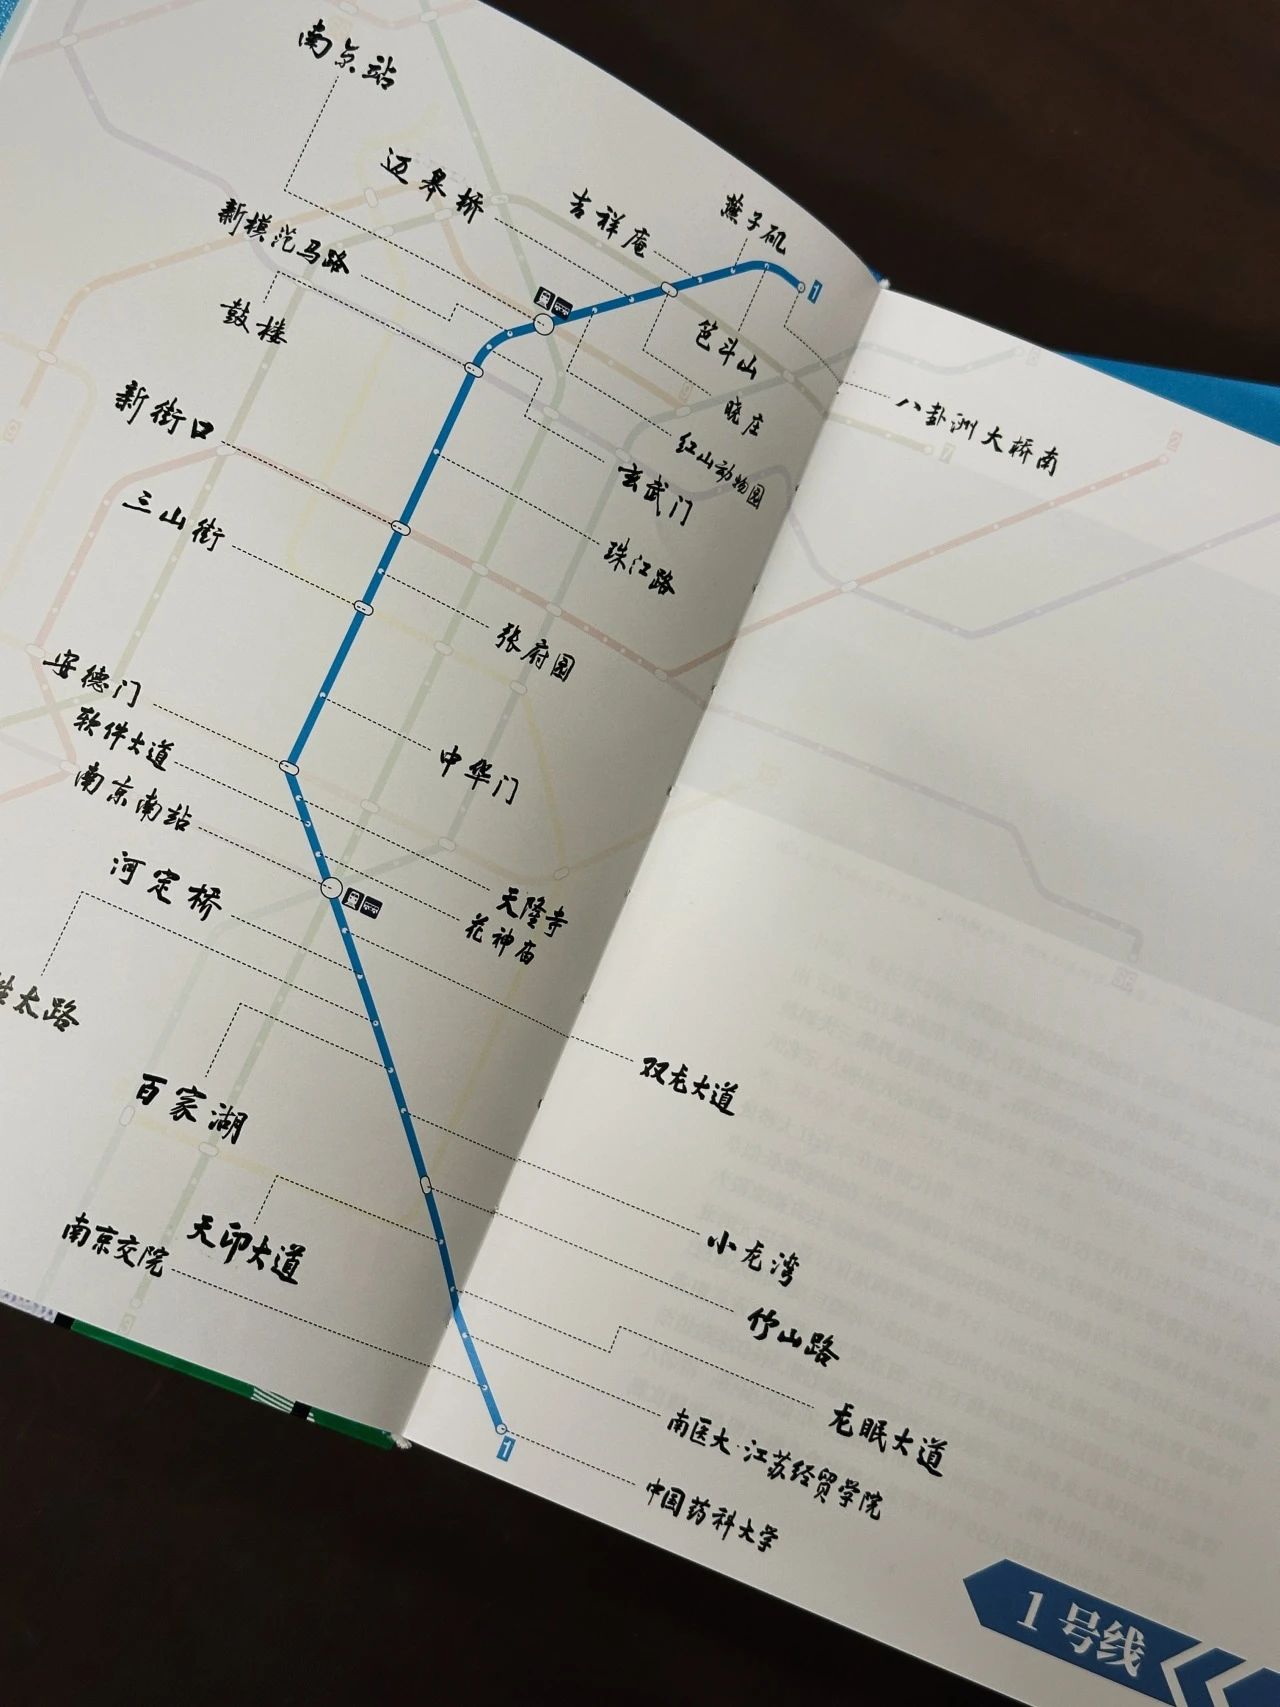 南京站
迈皋桥
吉祥庵
燕子矶
新模范马路
1
鼓楼
笆斗山
晓庄
八卦洲大桥南
新街口
红山动物园
玄武门
三山街
珠江路
张府园
安德门
软件大道
中华门
南京南站
河定桥
天隆寺
花神庙
太路
双龙大道
百家湖
小龙湾
天印大道
南京交院
竹山路
龙眠大道
南医大·江苏经贸学院
1
中国药科大学
1号线